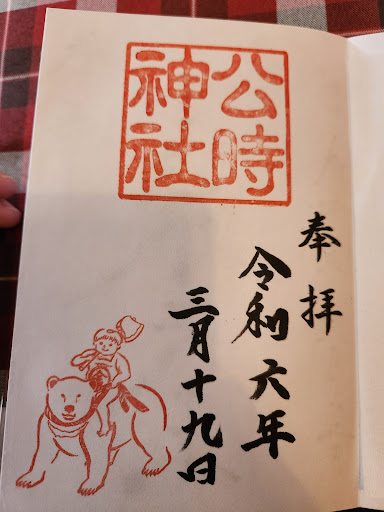 公時
神社
奉拝
令和六年
三月十九日